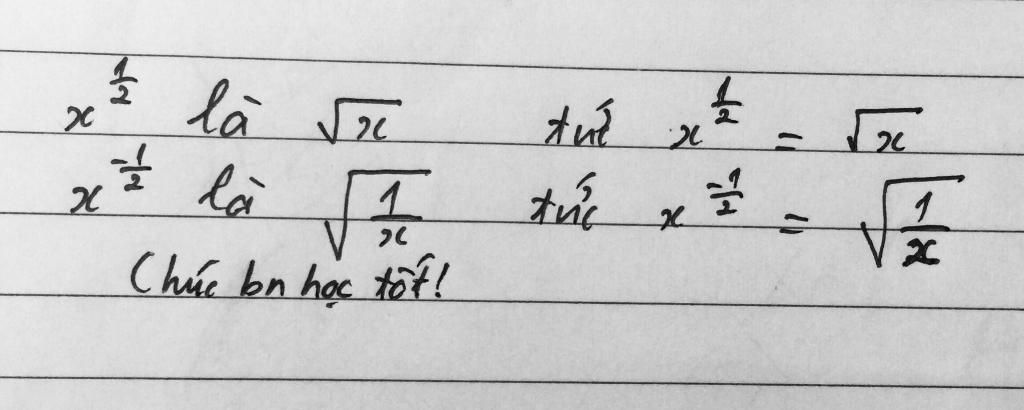 x^{\frac{1}{2}} là \sqrt{x} tức x^{\frac{1}{2}} = \sqrt{x}
x^{\frac{-1}{2}} là \sqrt{\frac{1}{x}} tức x^{\frac{-1}{2}} = \sqrt{\frac{1}{x}}
Chúc bn học tốt!